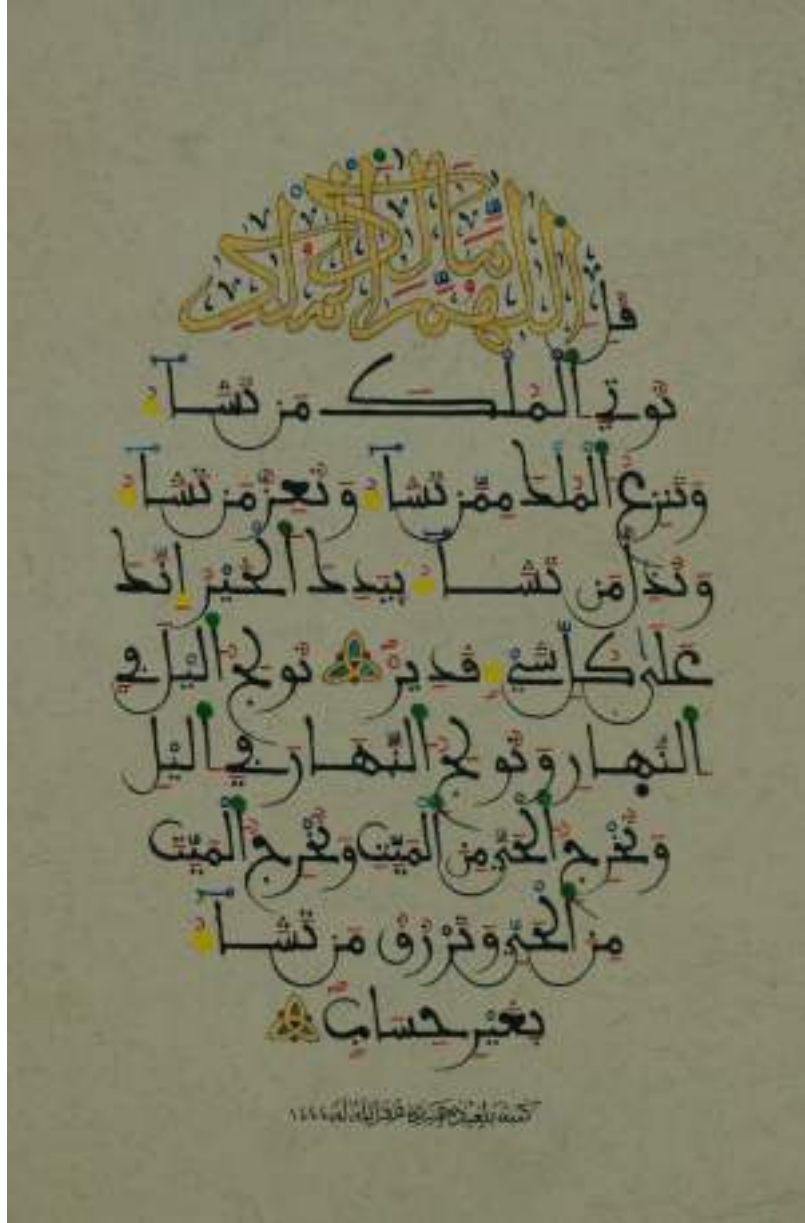 قُلِ اللَّهُمَّ مَالِكَ الْمُلْكِ
تُوتِي الْمُلْكَ مَن تَشَآءُ
وَتَنزِعُ الْمُلْكَ مِمَّن تَشَآءُ وَتُعِزُّ مَن تَشَآءُ
وَتُذِلُّ مَن تَشَآءُ بِيَدِكَ الْخَيْرُ إِنَّكَ
عَلَىٰ كُلِّ شَيْءٍ قَدِيرٌ تُولِجُ الَّيْلَ فِي
النَّهارِ وَتُولِجُ النَّهَارَ فِي الَّيْلِ
وَتُخْرِجُ الْحَيَّ مِنَ الْمَيِّتِ وَتُخْرِجُ الْمَيِّتَ
مِنَ الْحَيِّ وَتَرْزُقُ مَن تَشَآءُ
بِغَيْرِ حِسَابٍ
كتبه ١٤٤٤